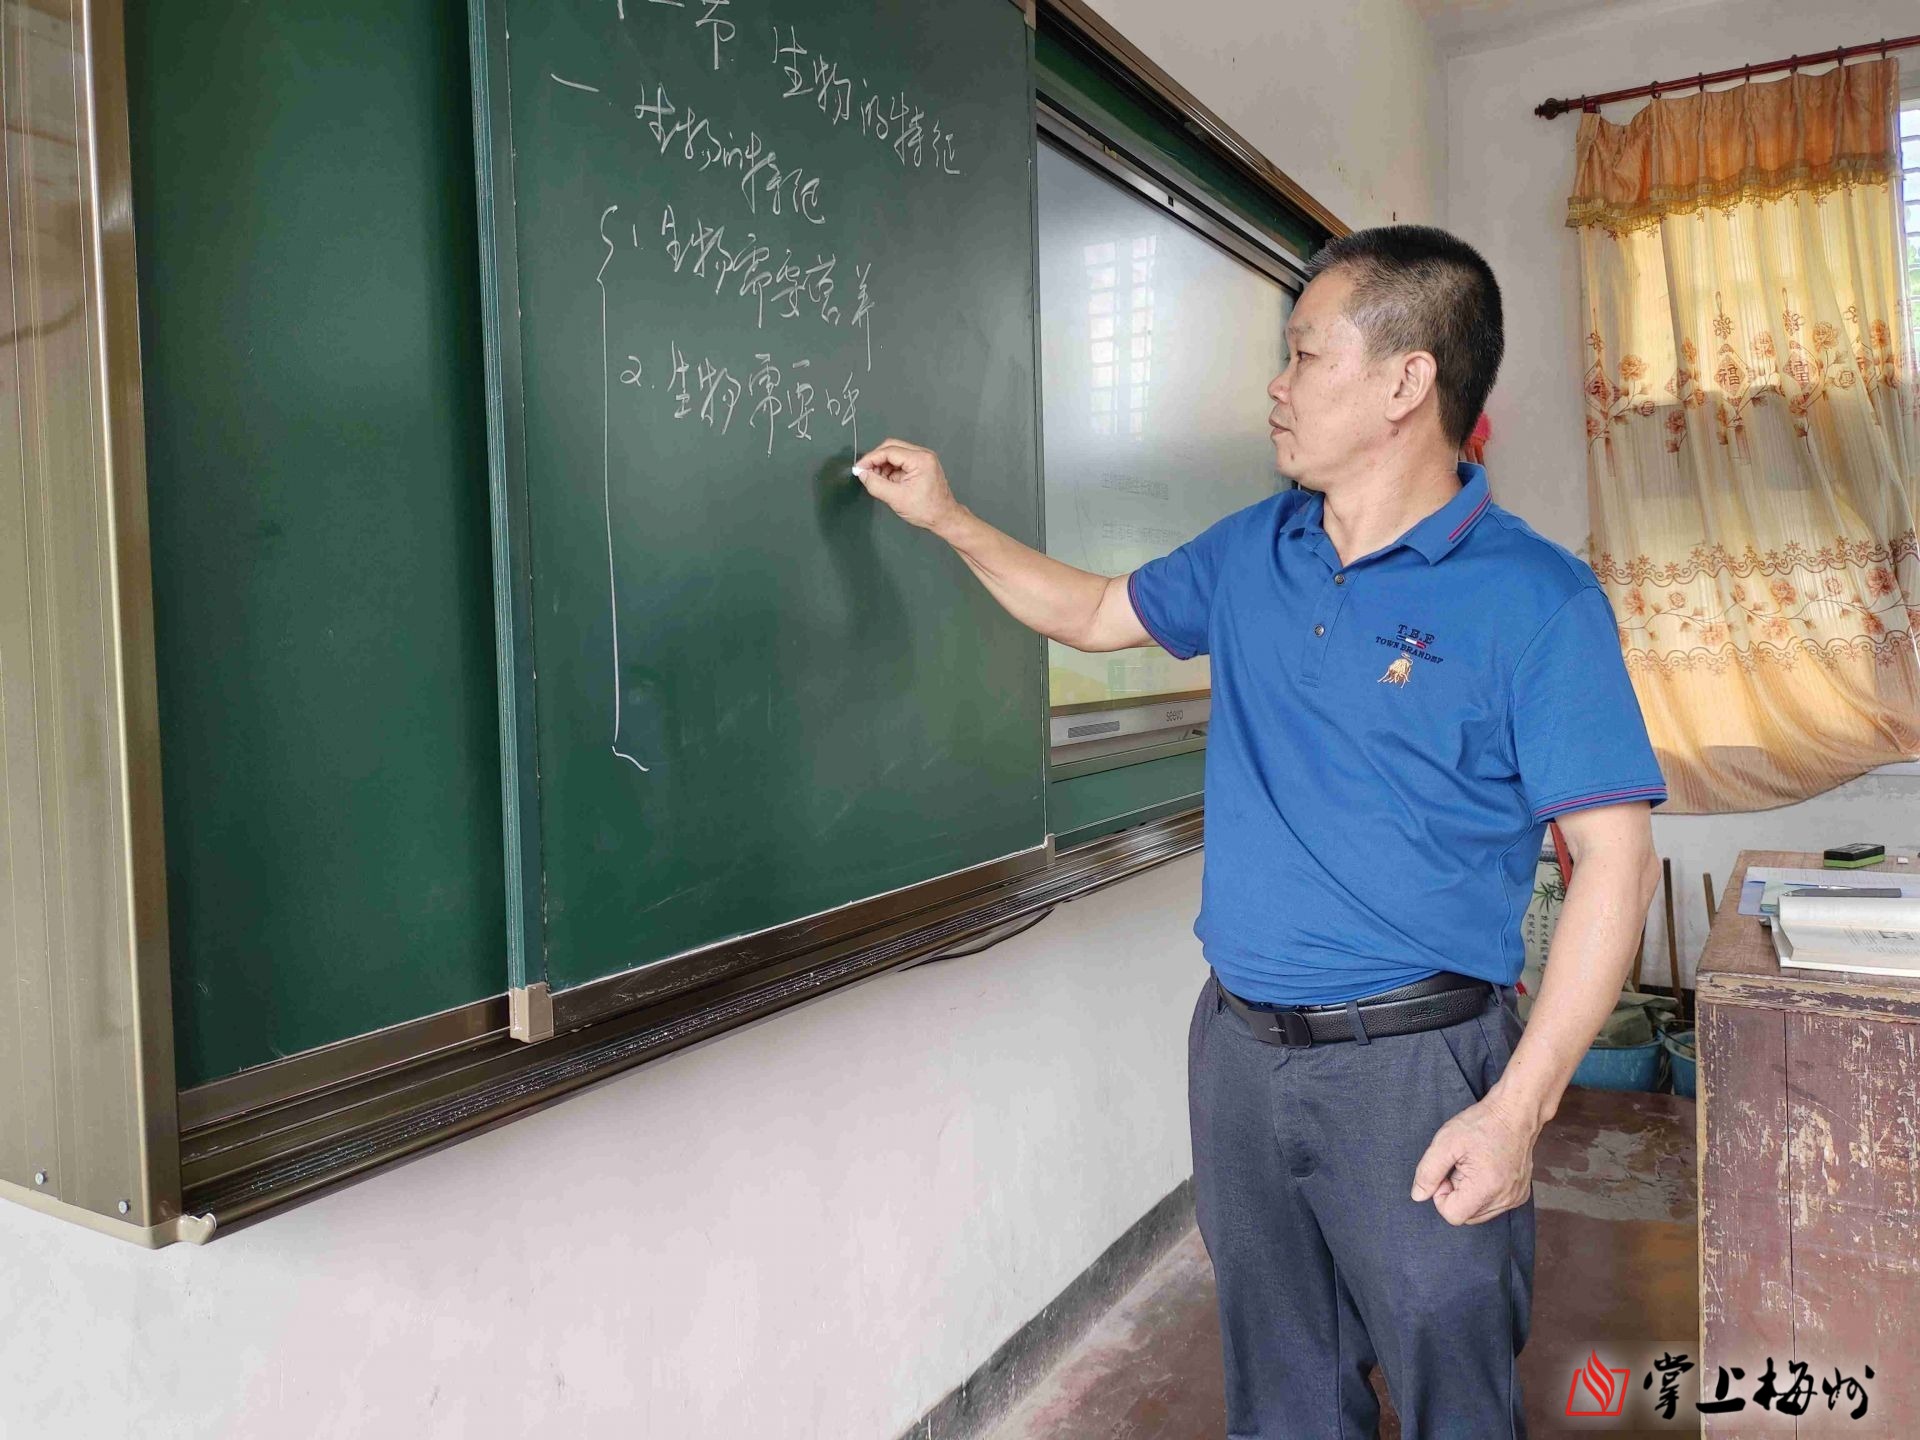 节 生物的特征
一 生物的特征
1. 生物需要营养
2. 生物需要呼
seewo
T.B.F
TOWN BRANDEF
福 皇
掌上梅州